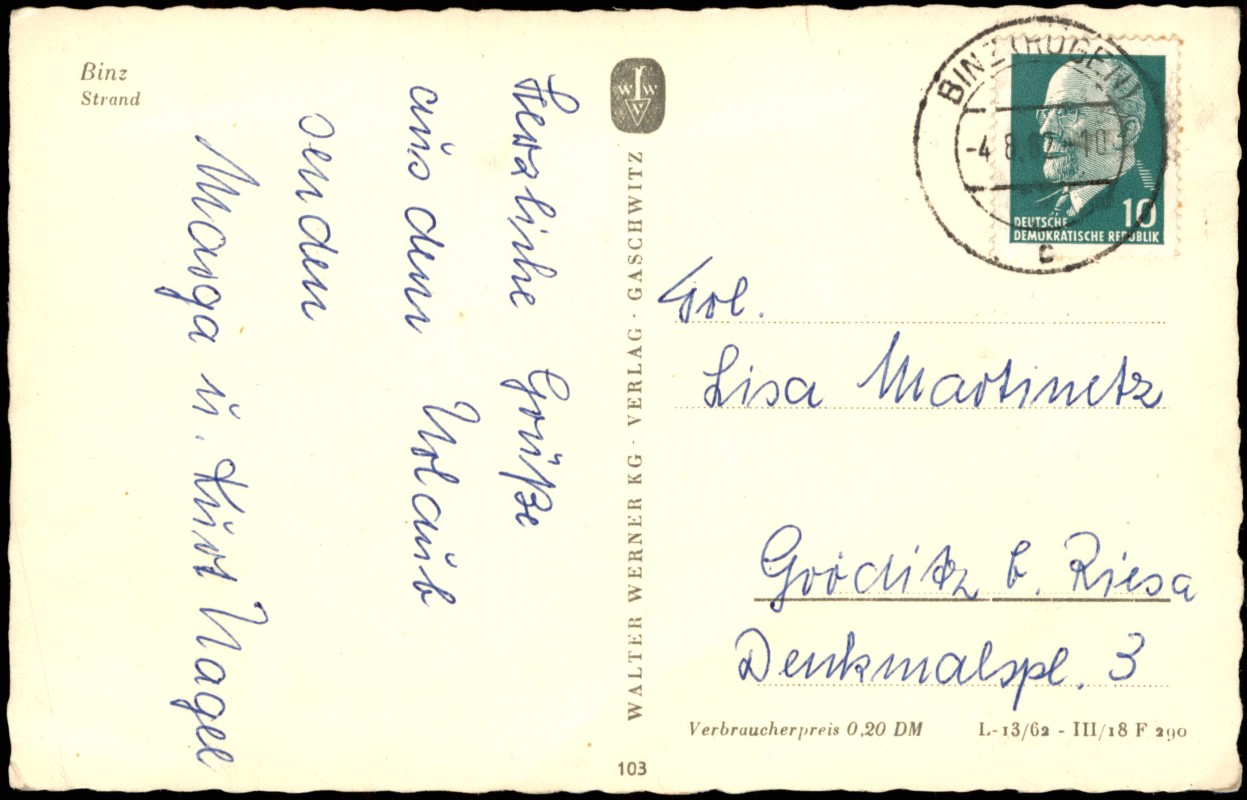 Binz
Strand
Herzliche Grüße
aus dem Urlaub
senden
Marga u. Kurt Nagel
W I W
V
WALTER WERNER KG · VERLAG · GASCHWITZ
BINZ (RÜGEN)
-4.8.62-10
c
10
DEUTSCHE
DEMOKRATISCHE REPUBLIK
Frl.
Lisa Martinetz
Gröditz b. Riesa
Denkmalspl. 3
Verbraucherpreis 0,20 DM
L-13/62 - III/18 F 290
103